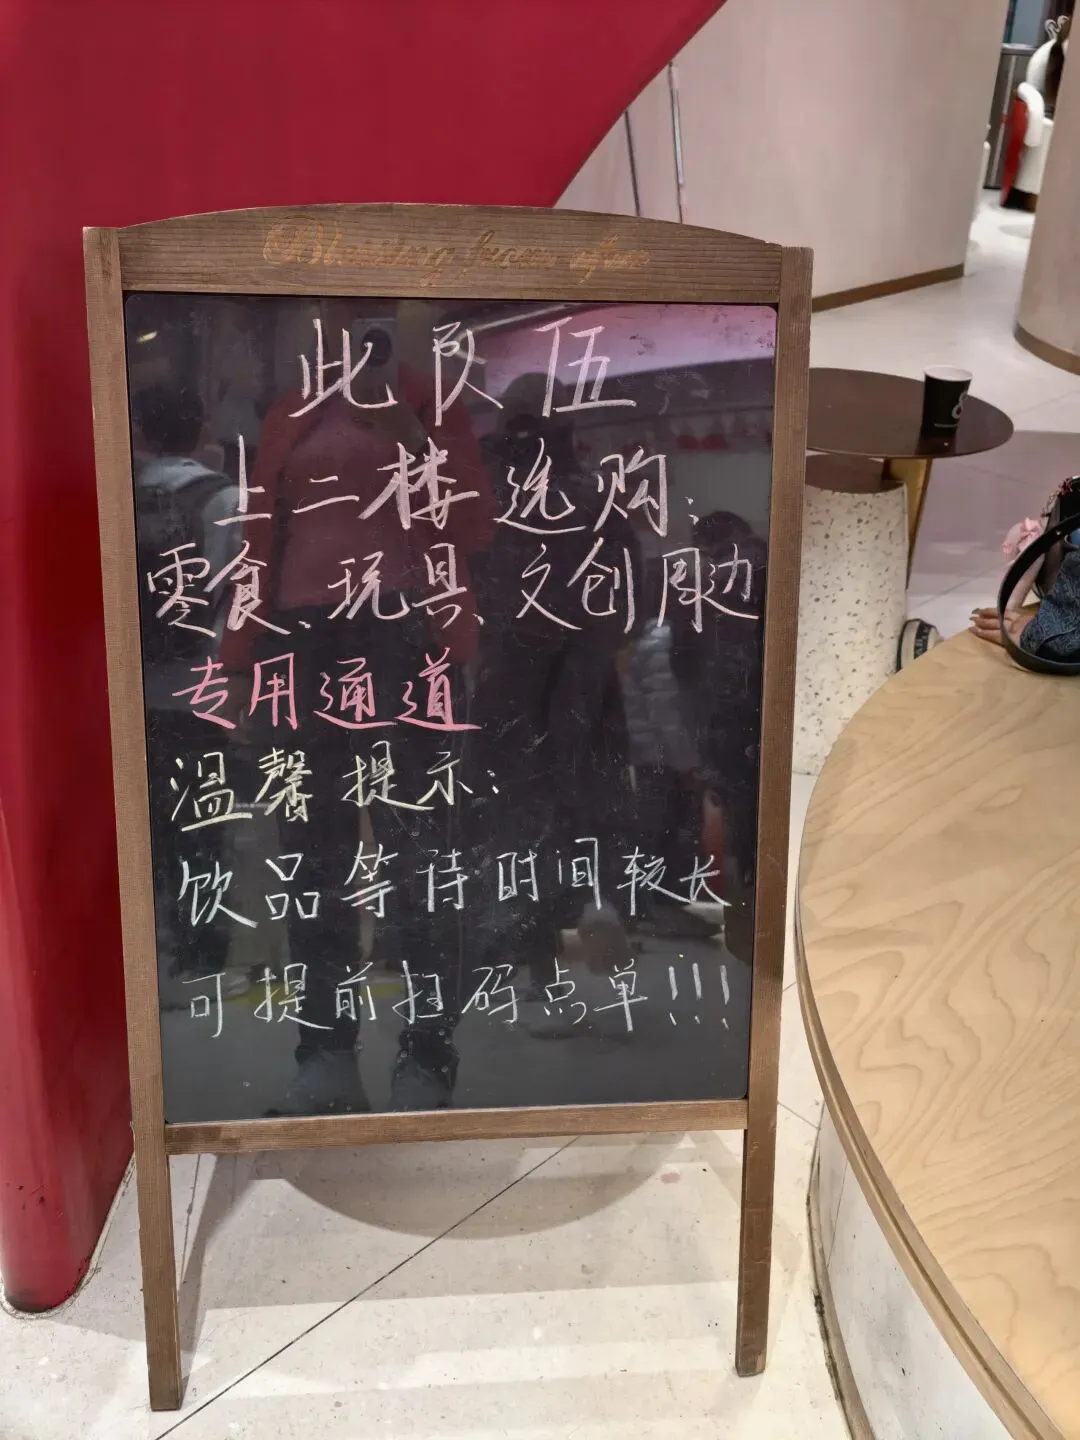 Blessing from afar
此队伍
上二楼选购:
零食、玩具、文创周边
专用通道
温馨提示:
饮品等待时间较长
可提前扫码点单!!!